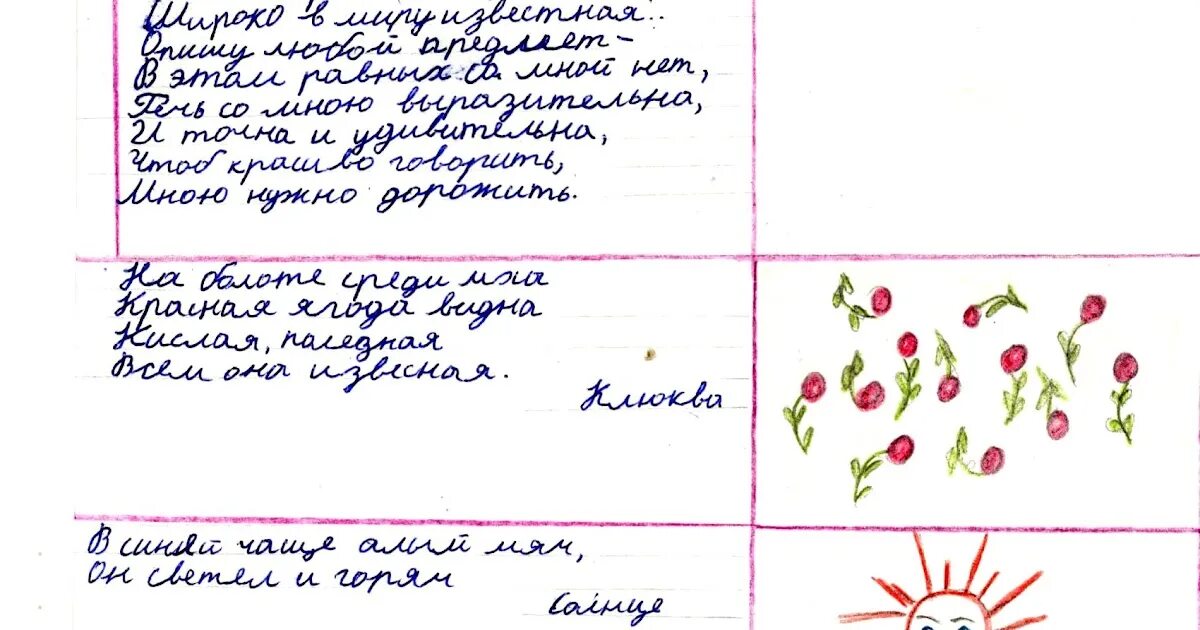 Широко в миру известная..
Опишу любой предмет –
В этом равных со мной нет,
Речь со мною выразительна,
И точна и удивительна,
Чтоб красиво говорить,
Мною нужно дорожить.
На болоте среди мха
Красная ягода видна
Кислая, паледная
Всем она извесная.
Клюква
В синей чаще алый мяч,
Он светел и горяч
Солнце